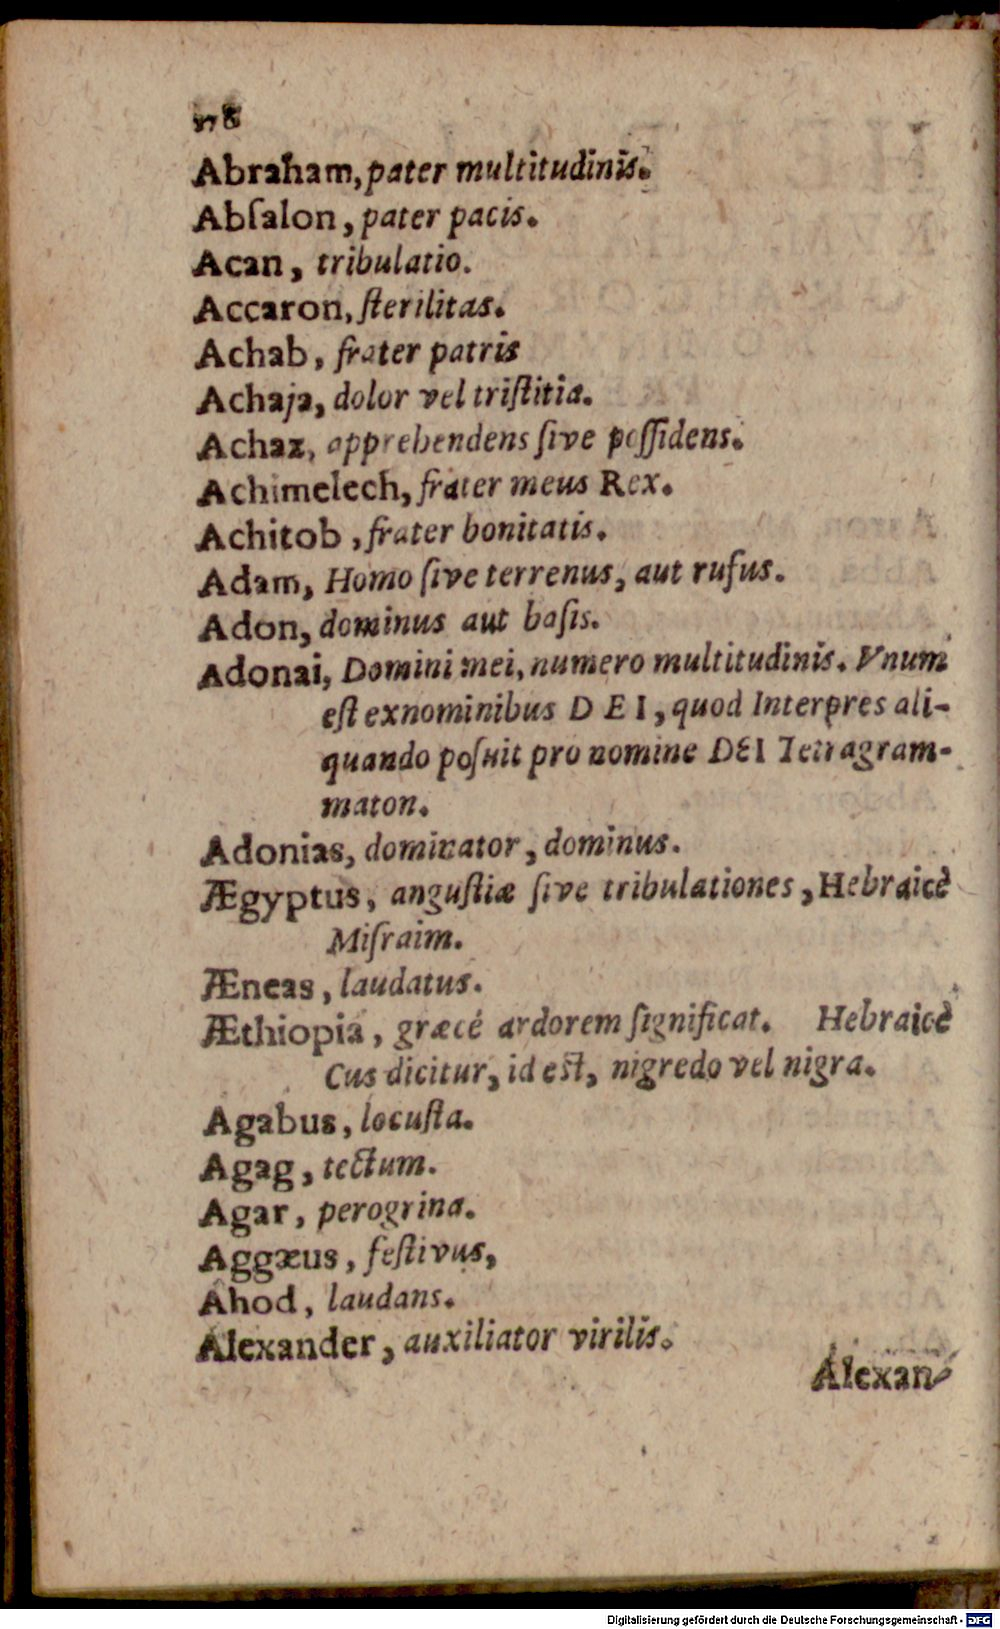 178
Abraham, pater multitudinis.
Abſalon, pater pacis.
Acan, tribulatio.
Accaron, ſterilitas.
Achab, frater patris
Achaja, dolor vel triſtitia.
Achaz, apprehendens ſive poſſidens.
Achimelech, frater meus Rex.
Achitob, frater bonitatis.
Adam, Homo ſive terrenus, aut rufus.
Adon, dominus aut baſis.
Adonai, Domini mei, numero multitudinis. Vnum
eſt exnominibus DEI, quod Interpres ali-
quando poſuit pro nomine DEI Tetragram-
maton.
Adonias, dominator, dominus.
Ægyptus, anguſtiæ ſive tribulationes, Hebraicè
Miſraim.
Æneas, laudatus.
Æthiopia, græcé ardorem ſignificat. Hebraicè
Cus dicitur, id eſt, nigredo vel nigra.
Agabus, locuſta.
Agag, tectum.
Agar, perogrina.
Aggæus, feſtivus,
Ahod, laudans.
Alexander, auxiliator virilis.
Alexan-
Digitalisierung gefördert durch die Deutsche Forschungsgemeinschaft - DFG